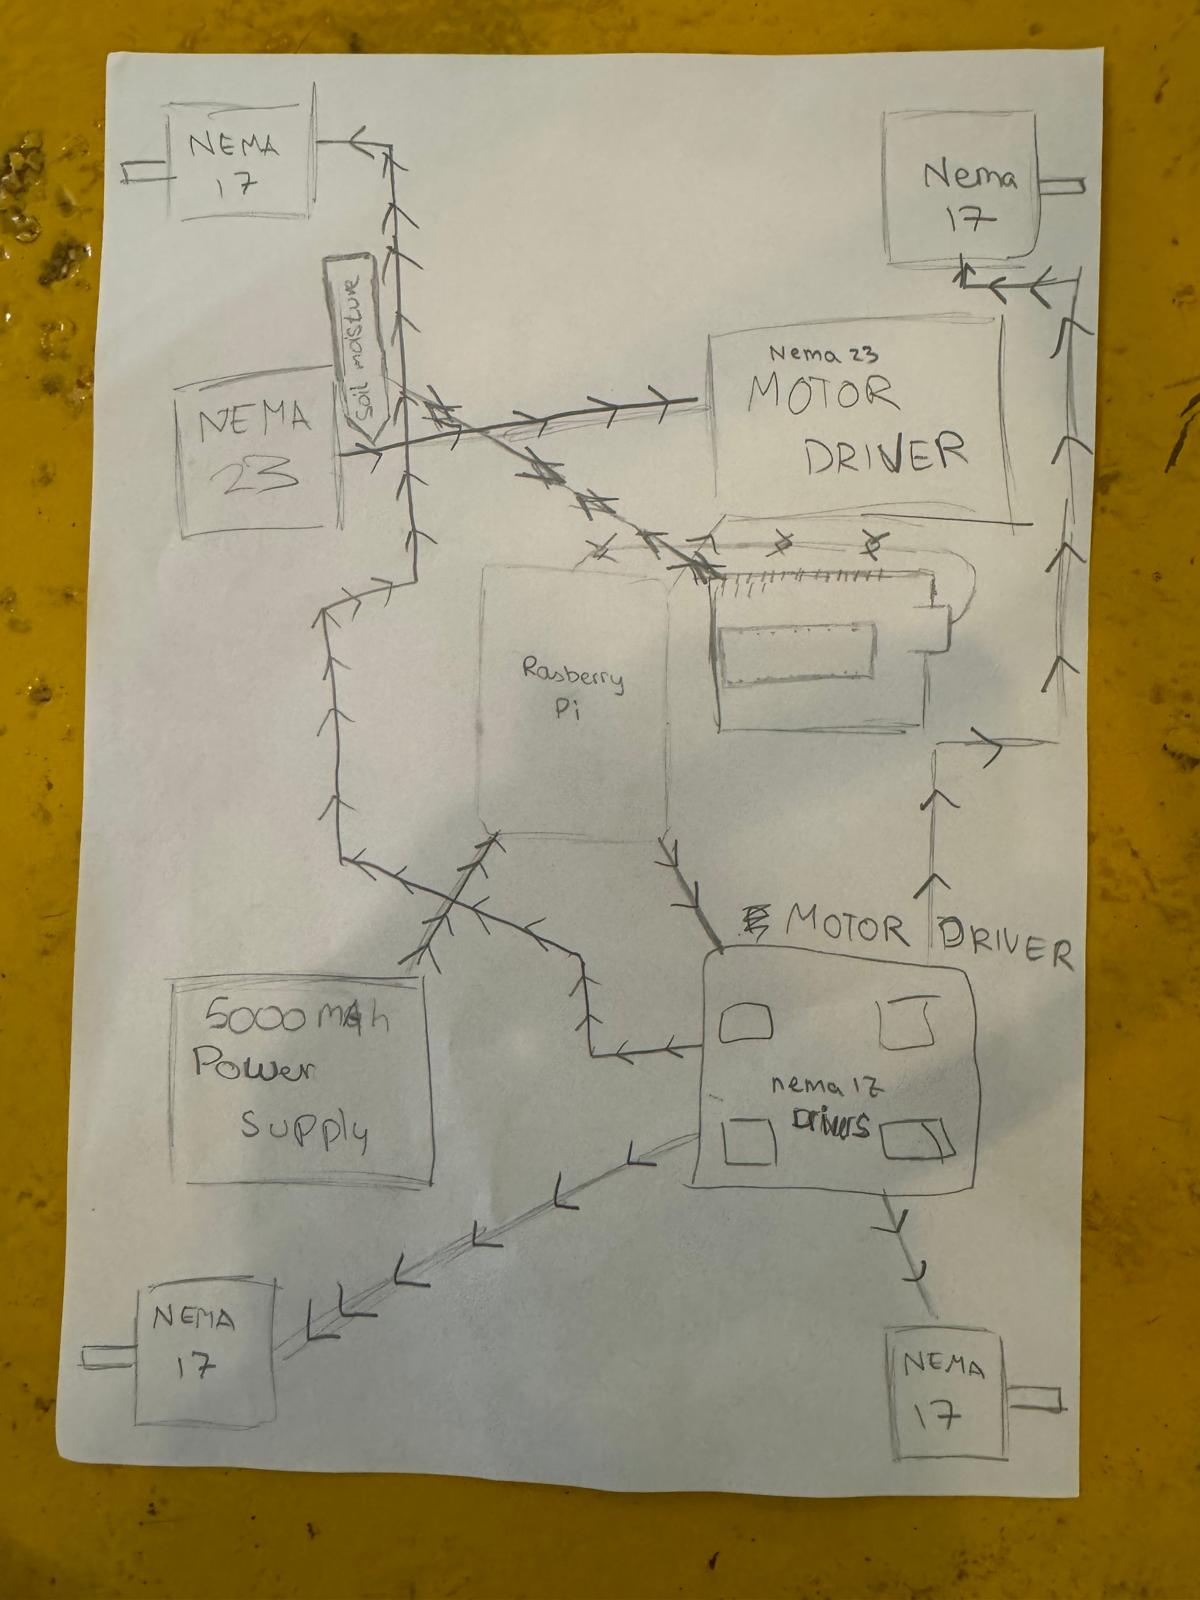 NEMA
17
Nema
17
Soil moisture
NEMA
23
Nema 23
MOTOR
DRIVER
Rasberry
Pi
MOTOR DRIVER
5000 mAh
Power
Supply
nema 17
Drivers
NEMA
17
NEMA
17